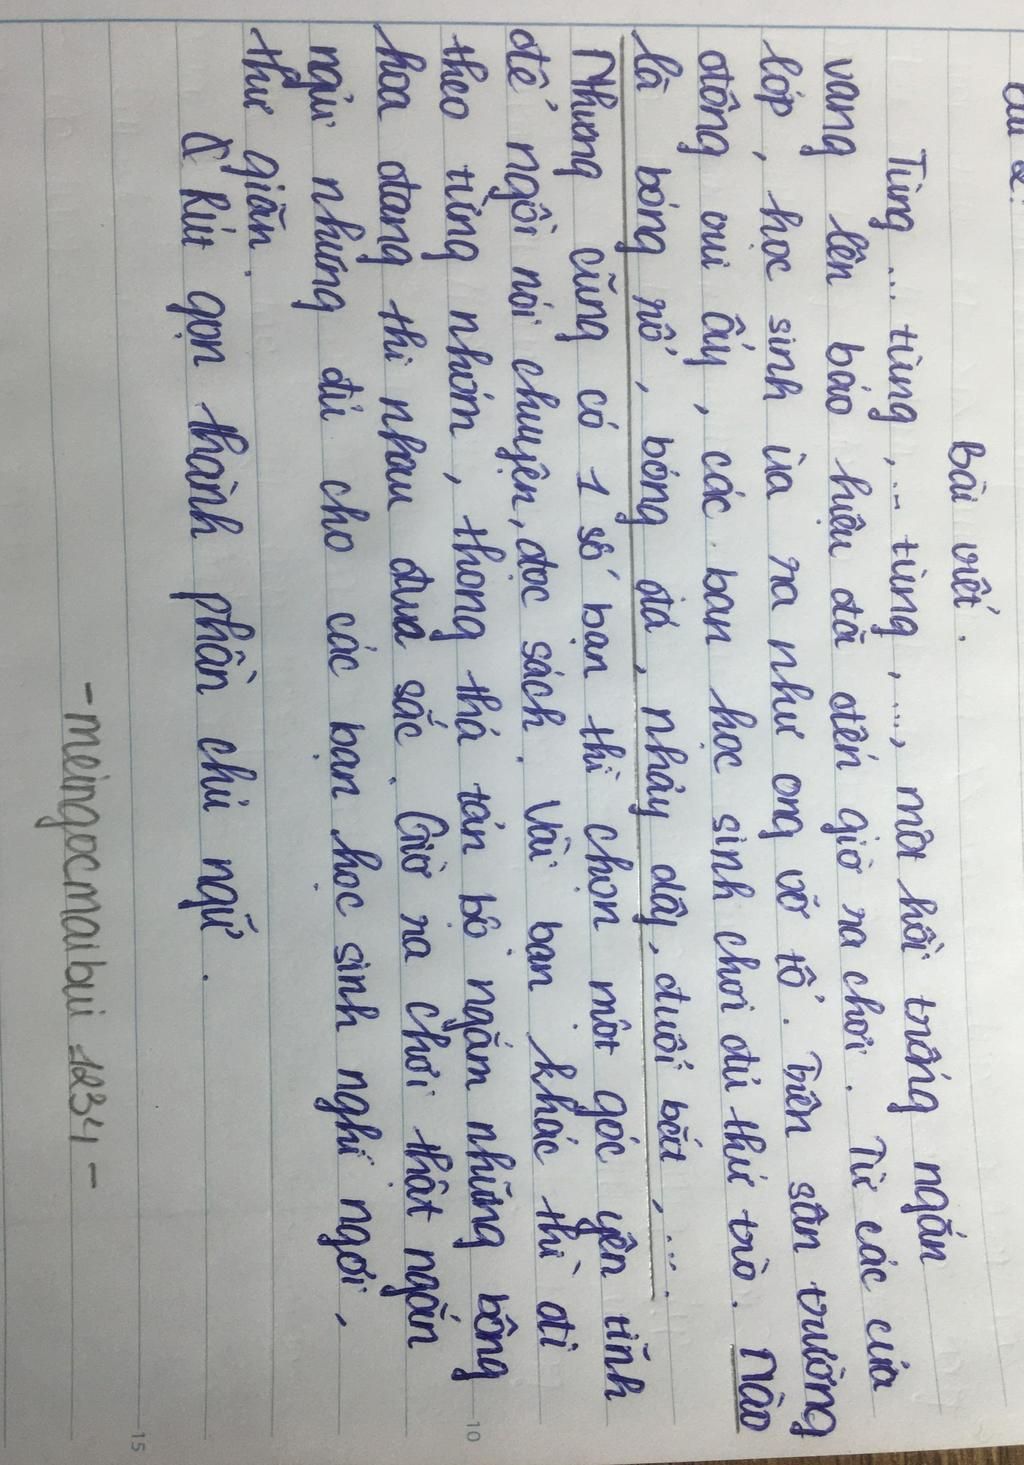 Bài viết.
Tùng... tùng,... tùng,..., một hồi trống ngắn
vang lên báo hiệu đã đến giờ ra chơi. Từ các cửa
lớp, học sinh ùa ra như ong vỡ tổ. Trên sân trường
đông vui ấy, các bạn học sinh chơi đủ thứ trò. Nào
là bóng rổ, bóng đá, nhảy dây, đuổi bắt,....
Nhưng cũng có 1 số bạn thì chọn một góc yên tĩnh
để ngồi nói chuyện, đọc sách. Vài bạn khác thì đi
theo từng nhóm, thong thả tản bộ ngắm những bông
hoa đang thi nhau đua sắc. Giờ ra chơi thật ngắn
ngủi nhưng đủ cho các bạn học sinh nghỉ ngơi,
thư giãn.
Rút gọn thành phần chủ ngữ.
-meingocmaibui1234-
10
15